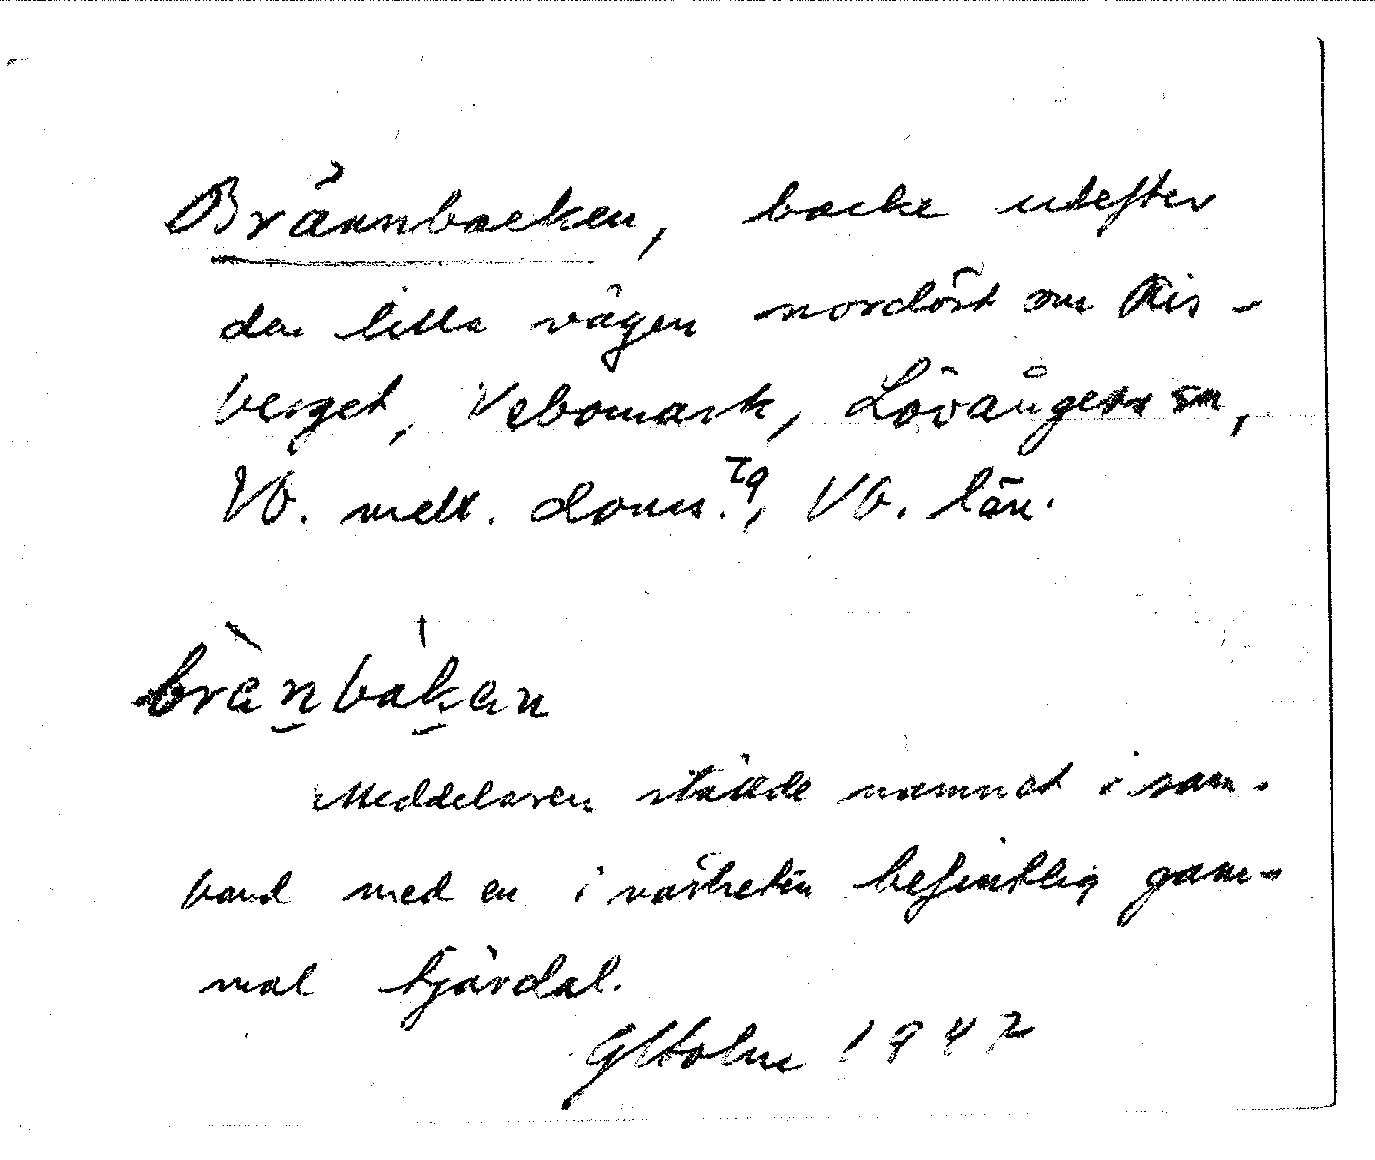 Brännbacken, backe utefter
den lilla vägen nordöst om Ris-
berget, Vebomark, Lövångers sn,
Vb. mell. doms. tg, Vb. län.
brä̀nbakan
Meddelaren ställde namnet i sam-
band med en i närheten befintlig gam-
mal tjärdal.
GHolm 1947